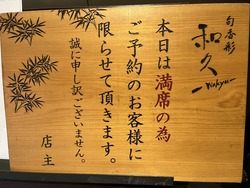 旬香彩
和久
Wakyu
本日は満席の為
ご予約のお客様に
限らせて頂きます。
誠に申し訳ございません。
店主